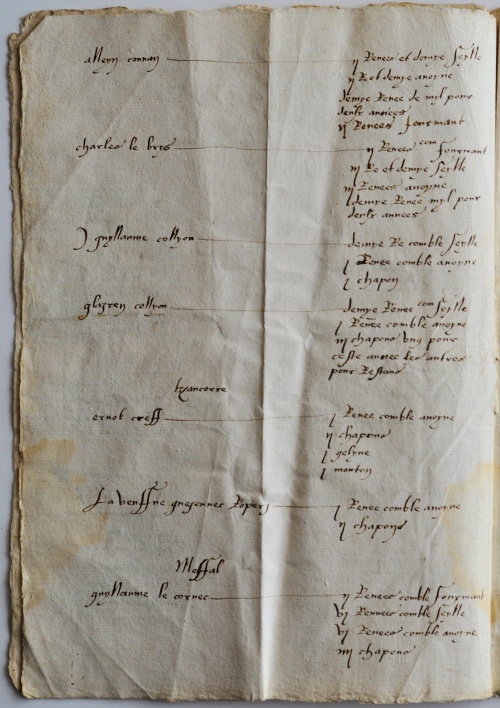 alleyn connan ij Renees et demye seylle
ij R et demye avoyne
demye Renee de myl pour
deulx annees
ij Renees fourmant
charles le brys ij Renees com fourmant
iij Re et demye seylle
iij Renees avoyne
demye Renee myl pour
deulx annees
guyllaume collyon demye Re comble seylle
j Renee comble avoyne
j chapon
glazren collyon demye Renee com seylle
j Renee comble avoyne
iij chapons ung pour
ceste annee les autres
pour Restans
trancorre
ernol creff j Renee comble avoyne
ij chapons
j gelyne
j mouton
La veuffve guegennec Ropers j Renee comble avoyne
ij chapons
Meffal
guyllaume le cornec ij Renees comble fourmant
vj Rennees comble seylle
vj Renees comble avoyne
iiij chapons